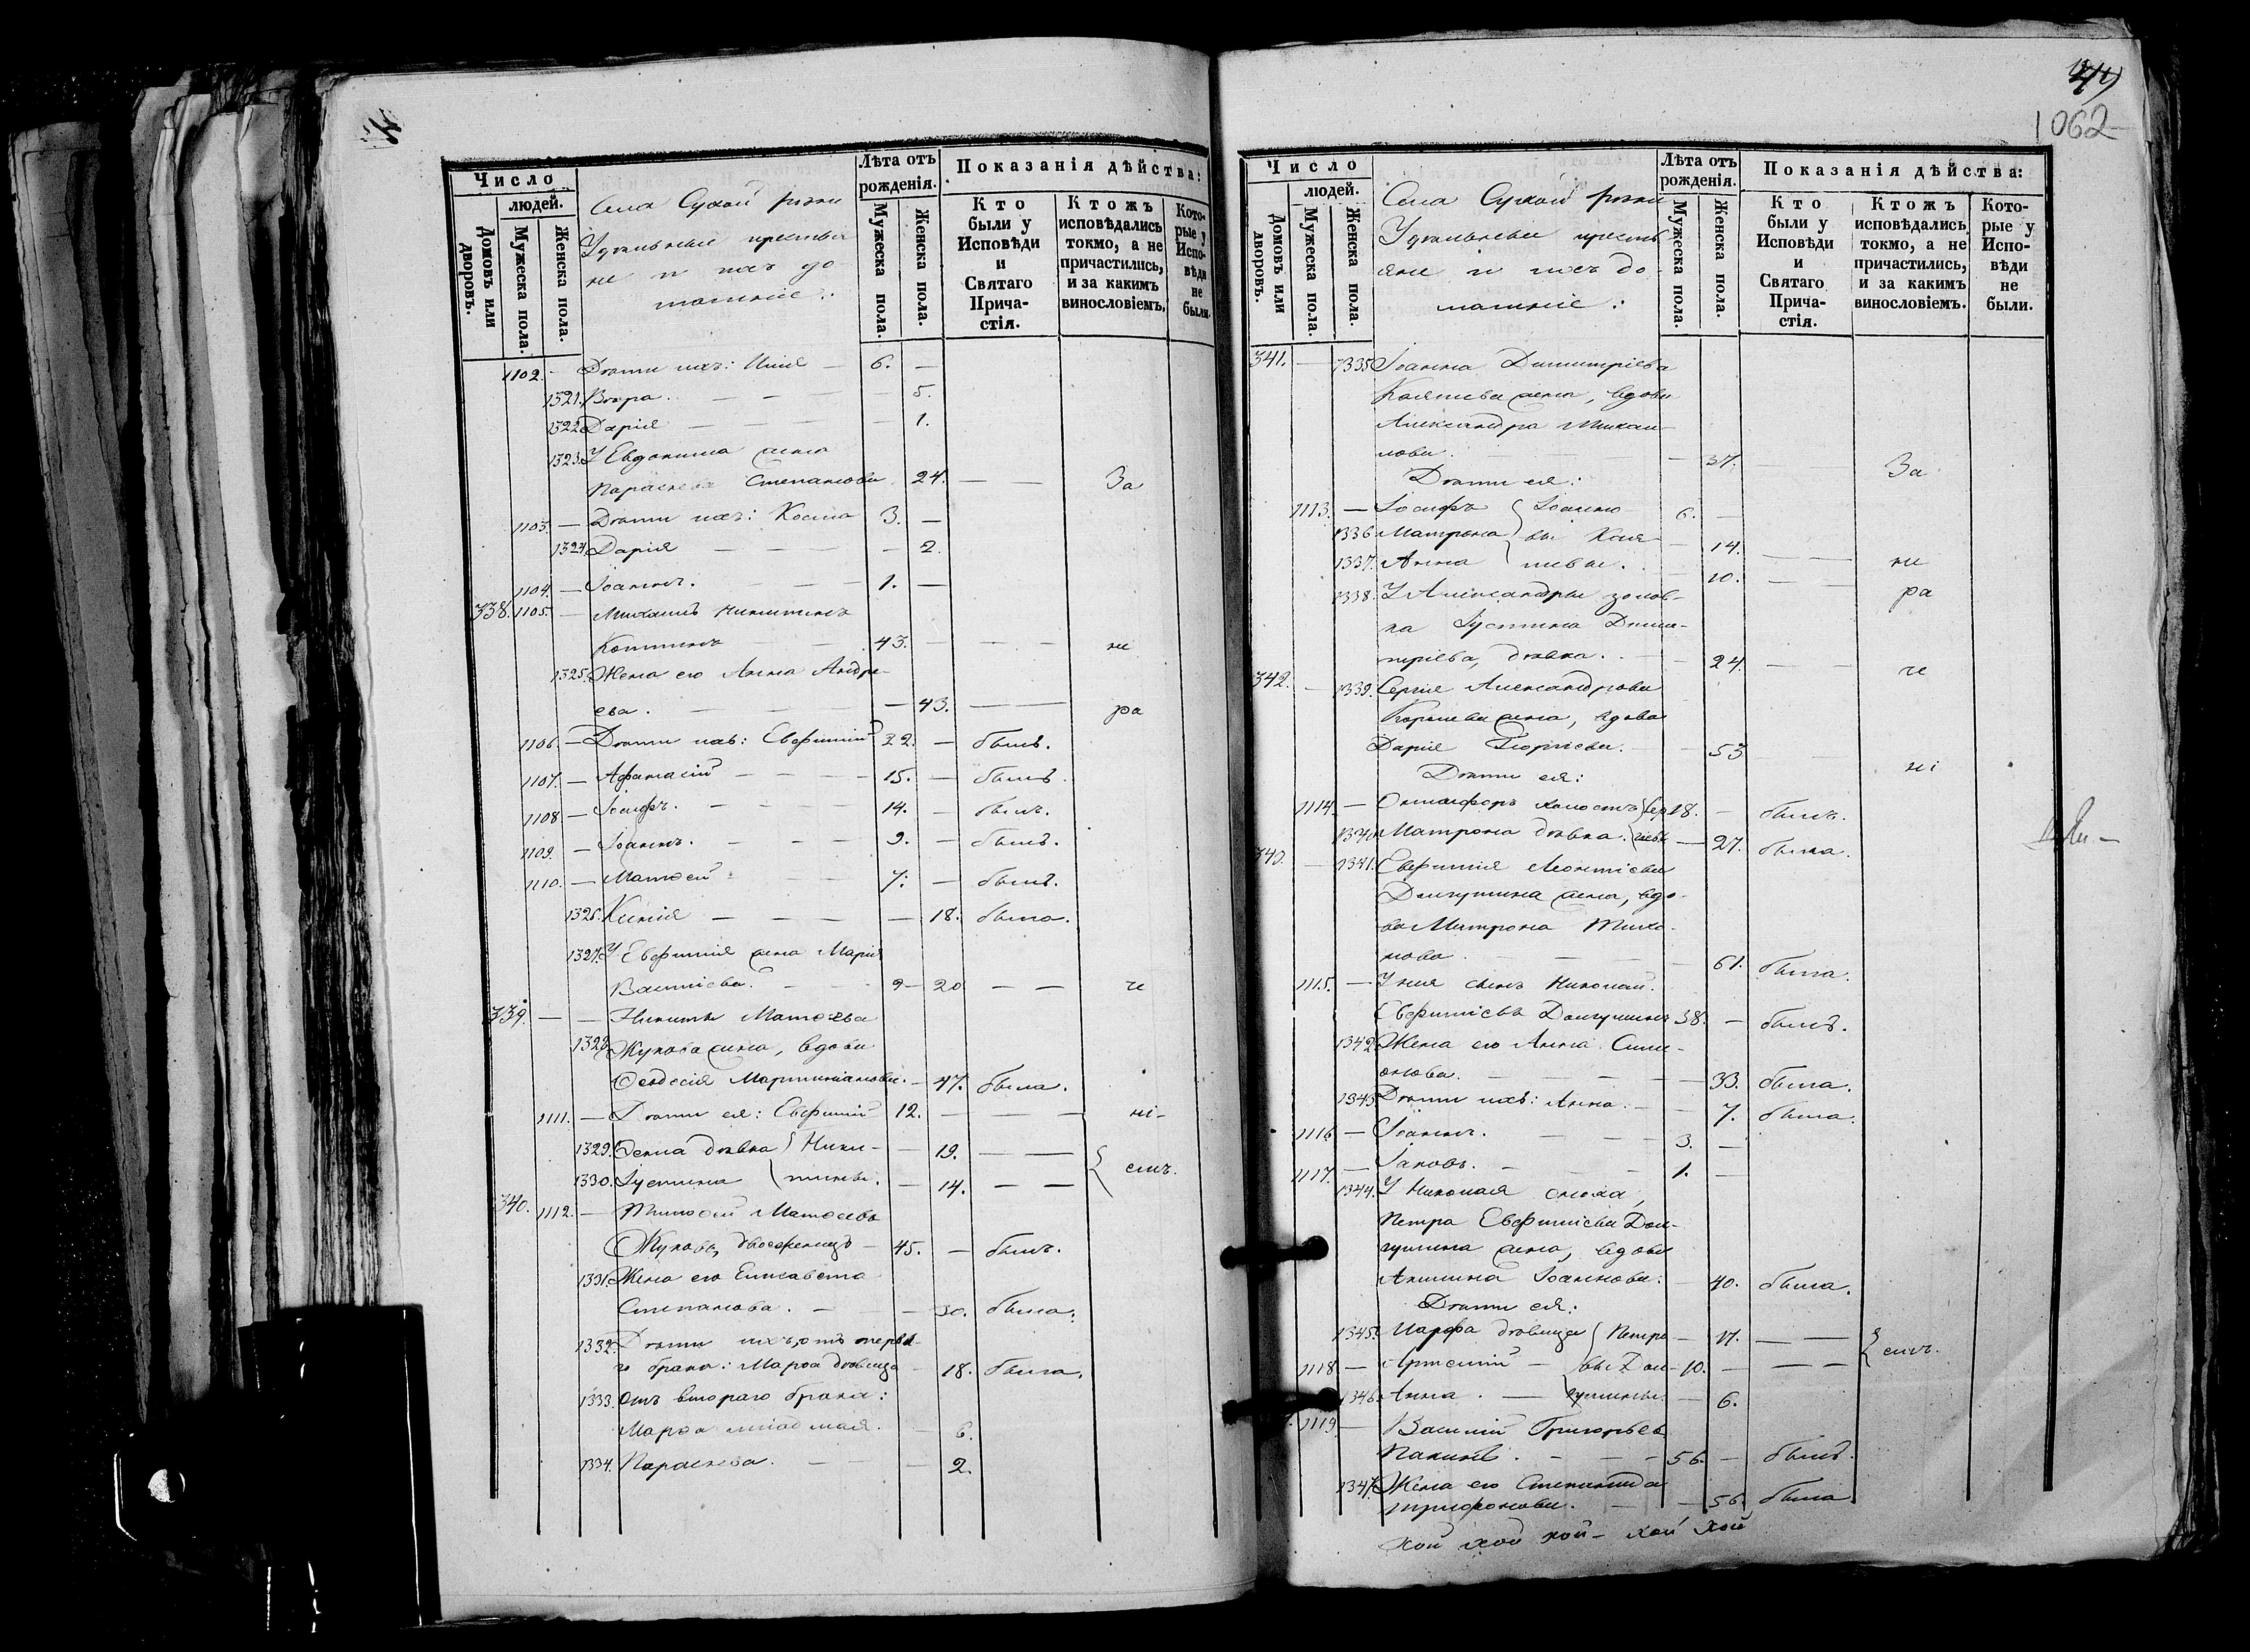 Число
людей.
Домовъ или дворовъ.
Мужеска пола.
Женска пола.
Села Сухой рѣчки
Удѣльные крестья
не и ихъ до-
машніе:
Лѣта отъ рожденія.
Мужеска пола.
Женска пола.
Показанія дѣйства:
Кто были у Исповѣди и Святаго Прича-стія.
Ктожъ исповѣдались токмо, а не причастились, и за какимъ винословіемъ.
Кото-рые у Испо-вѣди не были.
1102. — Дѣти ихъ: Илія — 6. —
1321. Вѣра. — — — — 5.
1322. Дарія — — — — 1.
1323. У Евдокима жена
Параскева Степанова 24. — — За
1103. — Дѣти ихъ: Косма 3. —
1324. Дарія — — — — 2.
1104. — Іоаннъ. — — — 1. —
338. 1105. — Михаилъ Никитинъ
43. — — — не
1325. Жена его Анна Андре-
ева. — — — — 43. — — ра
1106. — Дѣти ихъ: Евфимій 22. — былъ.
1107. — Афанасій — — — 15. — былъ.
1108 — Іосифъ. — — — 14. — былъ.
1109. — Іоаннъ. — — — 9. — былъ.
1110. — Матѳей — — — 7. — былъ.
1326. Ксенія — — — — 18. была.
1327. У Евфимія жена Марія
20 — — че
339. — — Никиты Матѳеева
1328. Жукова жена, вдова
Ѳеодосія Мартиніанова. — 47. была.
1111. — Дѣти ея: Евфимій 12. — — — ні-
1329. дѣвка } Ники- — 19. — —
емъ.
1330. Іустина } тины. — 14. — —
340. 1112. — Тимоѳей Матѳеевъ
Жуковъ, двоеженецъ — 45. — былъ.
1331. Жена его Елисавета
Степанова. — — 30. была.
1332. Дѣти ихъ, отъ перва-
го брака: Марѳа дѣвица — 18. была.
1333. Отъ втораго брака:
Марѳа младшая. — 6.
1334. Параскева. — — — 2.
1062
Число
людей.
Домовъ или дворовъ.
Мужеска пола.
Женска пола.
Села Сухой рѣчки
Удѣльные кресть
яне и ихъ до-
машніе:
Лѣта отъ рожденія.
Мужеска пола.
Женска пола.
Показанія дѣйства:
Кто были у Исповѣди и Святаго Прича-стія.
Ктожъ исповѣдались токмо, а не причастились, и за какимъ винословіемъ.
Кото-рые у Испо-вѣди не были.
341. — 1335 Іоанна Димитріева
жена, вдова
Александра Михаи-
лова. — — — 37. — — За
Дѣти ея:
1113. — Іосифъ { Іоанно 6. —
1336 Матрона } вы — 14. — — не
1337. Анна — 10. — — ра
1338. У Александры золов-
ка Іустина Дими-
тріева, дѣвка. — — 24. — — че
342. — 1339. Сергія Александрова
жена, вдова
Дарія Георгіева. — — 53 ні
Дѣти ея:
1114. — холостъ 18. — былъ.
1340. Матрона дѣвка. — 27. была.
343. — 1341. Евфимія Леонтіева
Долгушина жена, вдо-
ва Матрона Тихо-
нова. — — — — 61. была.
1115. — У нея сынъ Николай
Евфиміевъ Долгушинъ 38. — былъ.
1342. Жена его Анна Симе-
онова. — — — — 33. была.
1343. Дѣти ихъ: Анна. — — 7. была.
1116 — Іоаннъ. — — — 3. —
1117. — Іаковъ. — — — 1. —
1344. У Николая сноха,
Петра Евфиміева Дол-
гушина жена, вдова
Акилина Іоаннова. — 40. была.
Дѣти ея:
1345. Марфа дѣвица { Петро — 17. — —
емъ.
1118 — Артемій — } вы Дол- 10. — — —
1346. Анна. — гушины. — 6.
1119 — Василій Григорьевъ
— — — 56. — былъ.
1347. Жена его Степанида
Трифонова. — — 56. была